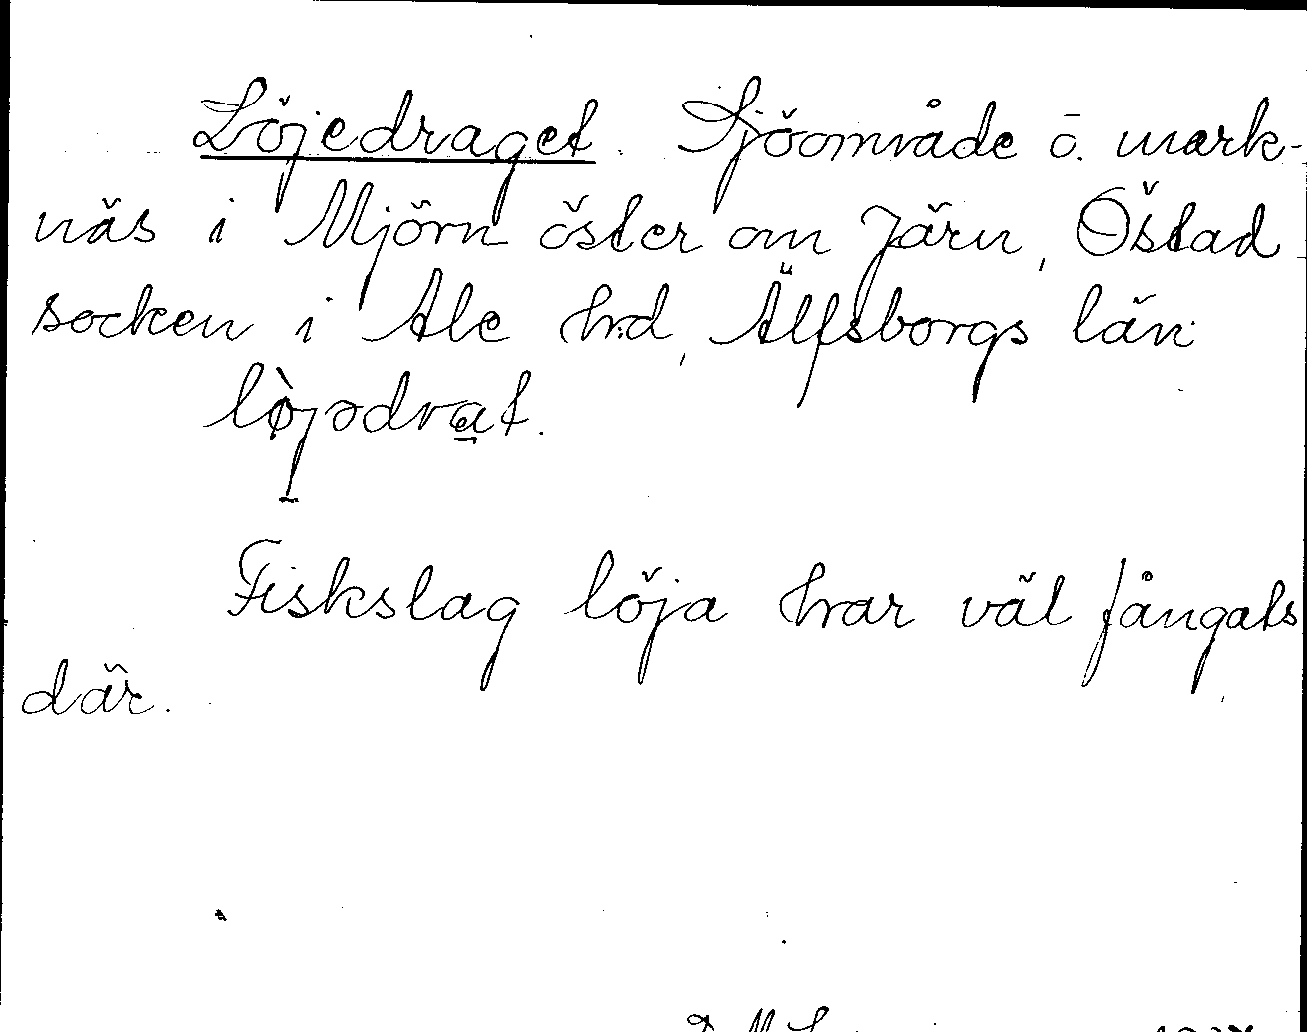 Löjedraget. Sjöområde ö. mark-
näs i Mjörn öster om Järn, Östad
socken i Ale hd, Älfsborgs län.
lø̀jədrat.
Fiskslag löja har väl fångats
där.